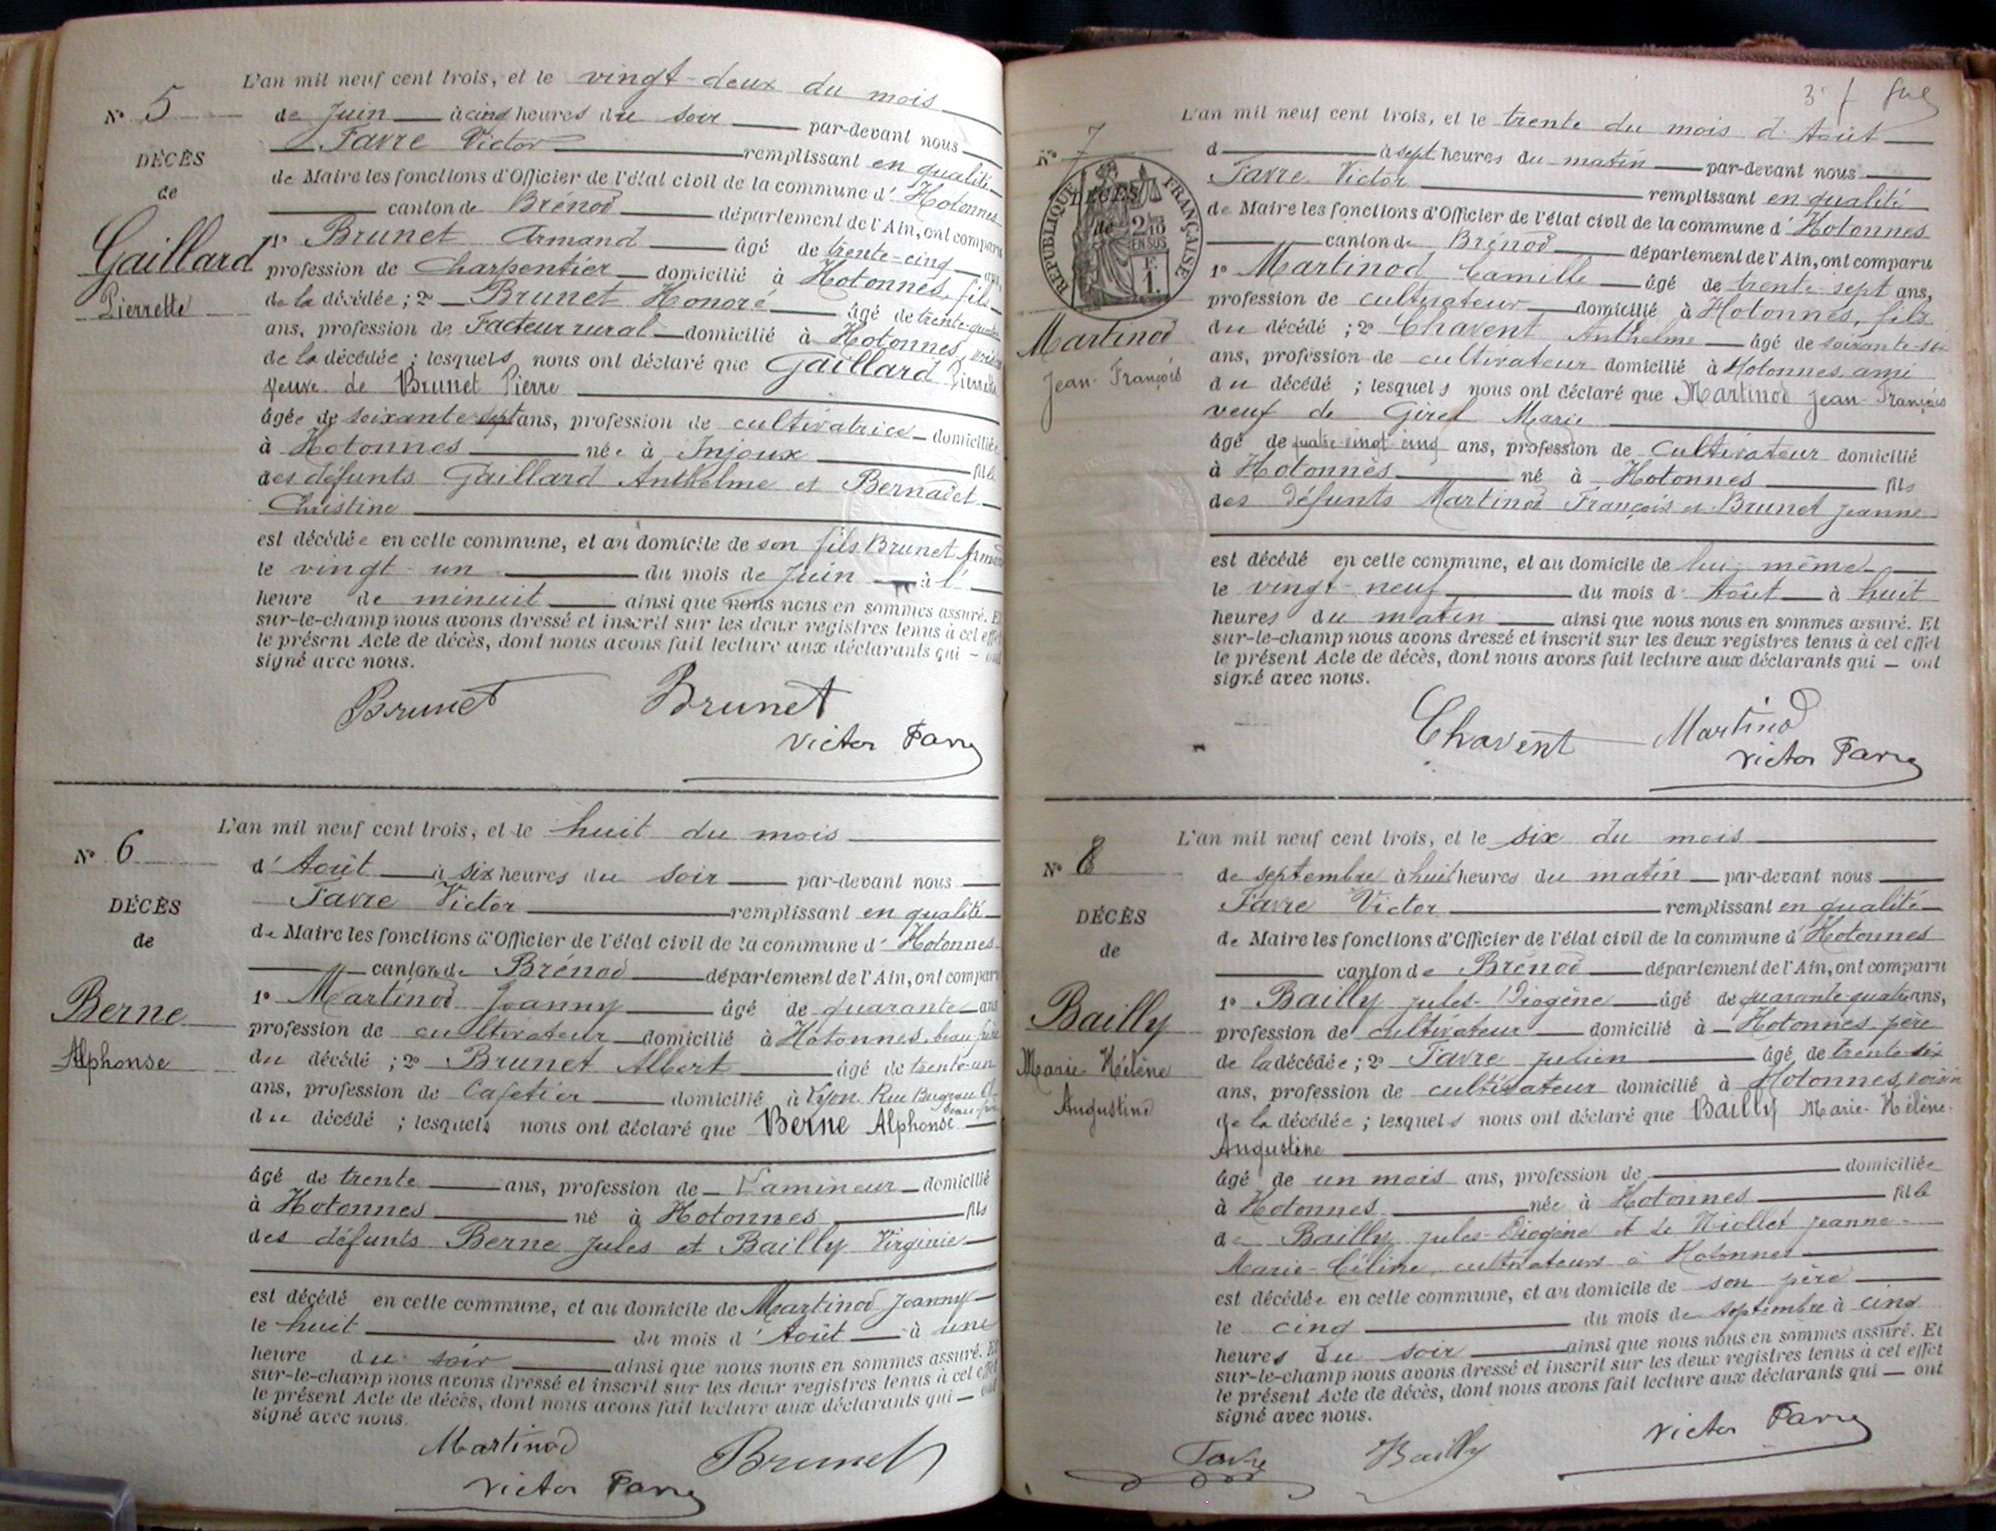 L'an mil neuf cent trois, et le vingt-deux du mois
Nº 5
de Juin à cinq heures du soir par-devant nous
Favre Victor remplissant en qualité
DÉCÈS
de Maire les fonctions d'Officier de l'état civil de la commune d'Hotonnes
de
canton de Brénod département de l'Ain, ont comparu
Gaillard
Pierrette
1º Brunet Armand âgé de trente-cinq ans,
profession de Charpentier domicilié à Hotonnes, fils
de la décédée ; 2º Brunet Honoré âgé de trente-quatre
ans, profession de Facteur rural domicilié à Hotonnes,
de la décédée ; lesquels nous ont déclaré que Gaillard Pierrette
veuve de Brunet Pierre
âgée de soixante-sept ans, profession de cultivatrice domiciliée
à Hotonnes née à Injoux fille
des défunts Gaillard Anthelme et Bernadet
Christine
est décédée en cette commune, et au domicile de son fils Brunet Armand
le vingt-un du mois de Juin à l'
heure de minuit ainsi que nous nous en sommes assuré. Et
sur-le-champ nous avons dressé et inscrit sur les deux registres tenus à cet effet
le présent Acte de décès, dont nous avons fait lecture aux déclarants qui ont
signé avec nous.
Brunet Brunet
Victor Favre
L'an mil neuf cent trois, et le huit du mois
Nº 6
d'Août à six heures du soir par-devant nous
Favre Victor remplissant en qualité
DÉCÈS
de Maire les fonctions d'Officier de l'état civil de la commune d'Hotonnes
de
canton de Brénod département de l'Ain, ont comparu
Berne
Alphonse
1º Martinod Joanny âgé de quarante ans
profession de cultivateur domicilié à Hotonnes, beau frère
du décédé ; 2º Brunet Albert âgé de trente-un
ans, profession de Cafetier domicilié à Lyon, Rue
beau frère
du décédé ; lesquels nous ont déclaré que Berne Alphonse
âgé de trente ans, profession de Lamineur domicilié
à Hotonnes né à Hotonnes fils
des défunts Berne Jules et Bailly Virginie
est décédé en cette commune, et au domicile de Martinod Joanny
le huit du mois d'Août à une
heure du soir ainsi que nous nous en sommes assuré. Et
sur-le-champ nous avons dressé et inscrit sur les deux registres tenus à cet effet
le présent Acte de décès, dont nous avons fait lecture aux déclarants qui ont
signé avec nous.
Martinod Brunet
Victor Favre
3e f
L'an mil neuf cent trois, et le trente du mois d'Août
Nº 7
d à sept heures du matin par-devant nous
Favre Victor remplissant en qualité
DÉCÈS
de
RÉPUBLIQUE FRANÇAISE
2/10 EN SUS
1 F.
de Maire les fonctions d'Officier de l'état civil de la commune d'Hotonnes
canton de Brénod département de l'Ain, ont comparu
1º Martinod Camille âgé de trente-sept ans,
profession de cultivateur domicilié à Hotonnes, fils
Martinod
Jean-François
du décédé ; 2º Chavent Anthelme âgé de soixante-six
ans, profession de cultivateur domicilié à Hotonnes, ami
du décédé ; lesquels nous ont déclaré que Martinod Jean-François
veuf de Girel Marie
âgé de quatre-vingt-cinq ans, profession de Cultivateur domicilié
à Hotonnes né à Hotonnes fils
des défunts Martinod François et Brunet Jeanne
est décédé en cette commune, et au domicile de lui-même
le vingt-neuf du mois d'Août à huit
heures du matin ainsi que nous nous en sommes assuré. Et
sur-le-champ nous avons dressé et inscrit sur les deux registres tenus à cet effet
le présent Acte de décès, dont nous avons fait lecture aux déclarants qui ont
signé avec nous.
Chavent Martinod
Victor Favre
L'an mil neuf cent trois, et le six du mois
Nº 8
de septembre à huit heures du matin par-devant nous
Favre Victor remplissant en qualité
DÉCÈS
de Maire les fonctions d'Officier de l'état civil de la commune d'Hotonnes
de
canton de Brénod département de l'Ain, ont comparu
Bailly
Marie-Hélène
Augustine
1º Bailly Jules-Diogène âgé de quarante-quatre ans,
profession de cultivateur domicilié à Hotonnes, père
de la décédée ; 2º Favre Julien âgé de trente-six
ans, profession de cultivateur domicilié à Hotonnes, voisin
de la décédée ; lesquels nous ont déclaré que Bailly Marie-Hélène-
Augustine
âgé de un mois ans, profession de domiciliée
à Hotonnes née à Hotonnes fille
de Bailly Jules-Diogène et de Niollet Jeanne-
Marie-Céline, cultivateurs à Hotonnes
est décédée en cette commune, et au domicile de son père
le cinq du mois de septembre à cinq
heures du soir ainsi que nous nous en sommes assuré. Et
sur-le-champ nous avons dressé et inscrit sur les deux registres tenus à cet effet
le présent Acte de décès, dont nous avons fait lecture aux déclarants qui ont
signé avec nous.
Favre Bailly Victor Favre